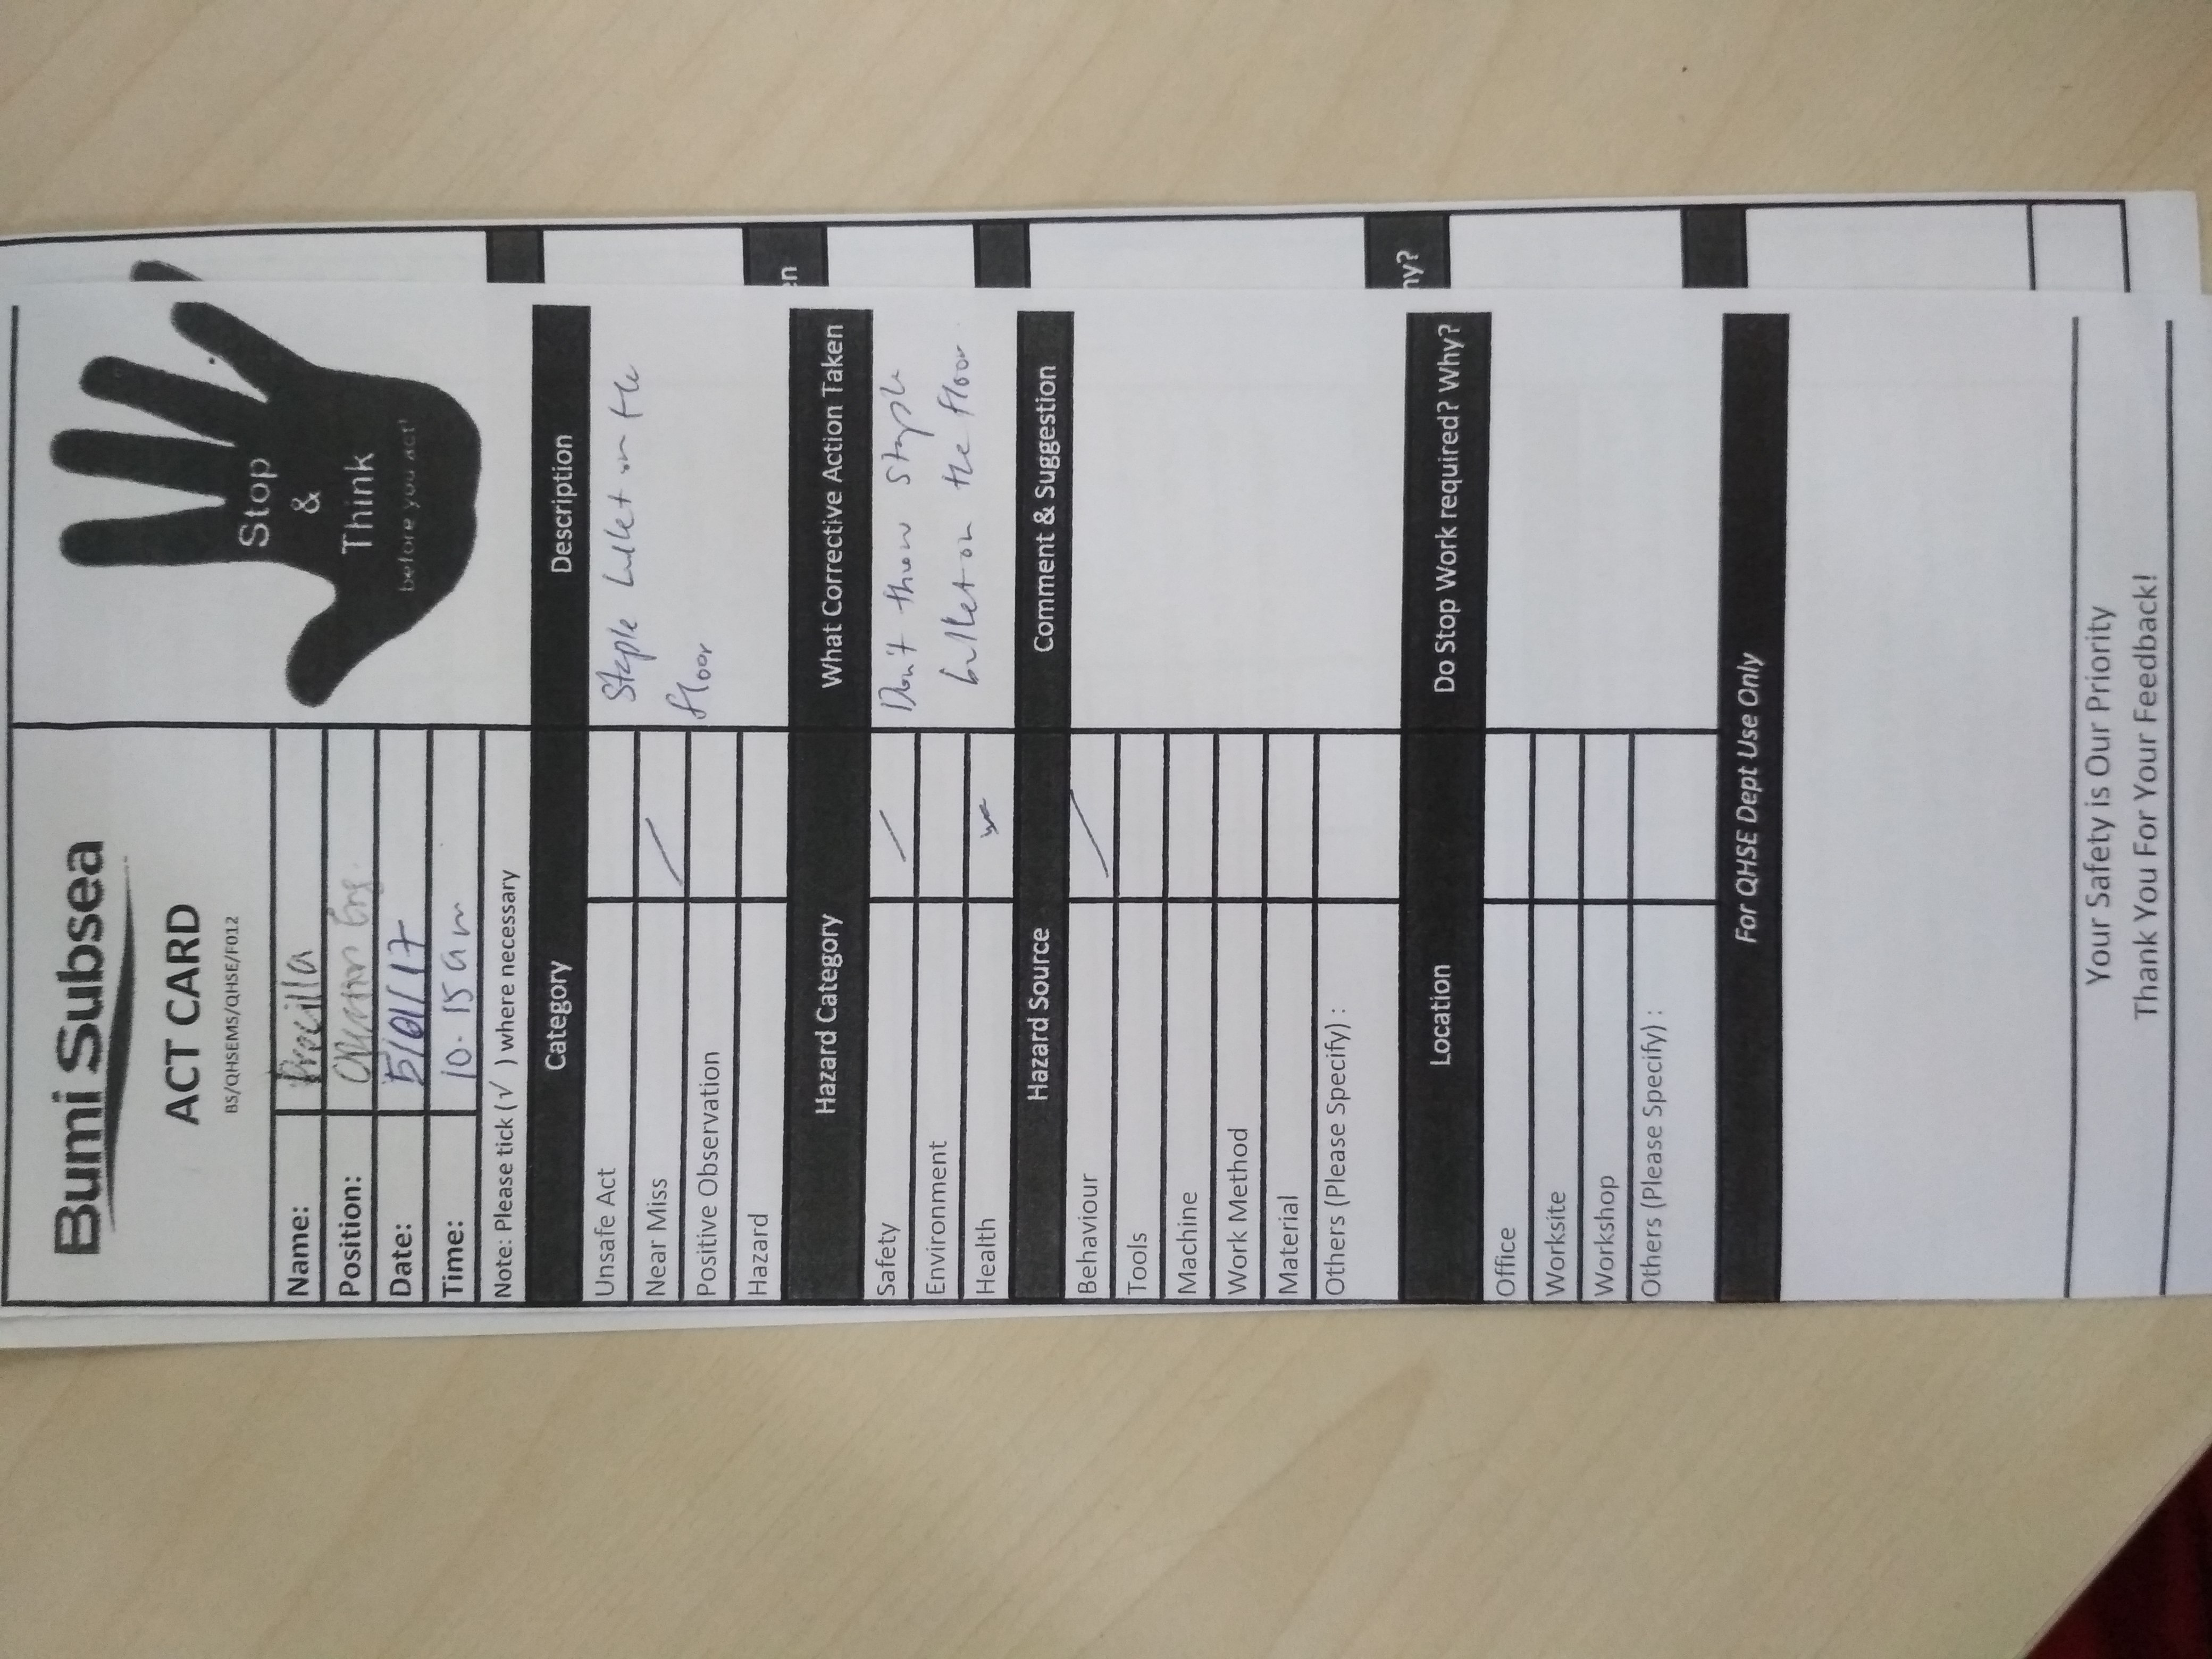 Bumi Subsea
ACT CARD
BS/QHSEMS/QHSE/F012
Stop
&
Think
before you act!
Name:
Position:
Date: 5/01/17
Time: 10.15 am
Note: Please tick (√ ) where necessary
Category Description
Unsafe Act
Near Miss
Positive Observation
Hazard
Staple bullet on the
floor
Hazard Category What Corrective Action Taken
Safety
Environment
Health
Don't throw staple
bullet on the floor
Hazard Source Comment & Suggestion
Behaviour
Tools
Machine
Work Method
Material
Others (Please Specify) :
Location Do Stop Work required? Why?
Office
Worksite
Workshop
Others (Please Specify) :
For QHSE Dept Use Only
Your Safety is Our Priority
Thank You For Your Feedback!